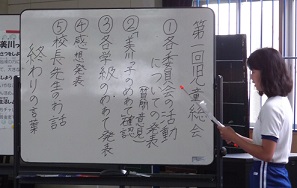 第一回児童総会
①各委員会の活動
についての発表
質問・意見
②美川っ子のめあて確認
③各学級のめあて発表
④感想発表
⑤校長先生のお話
終わりの言葉